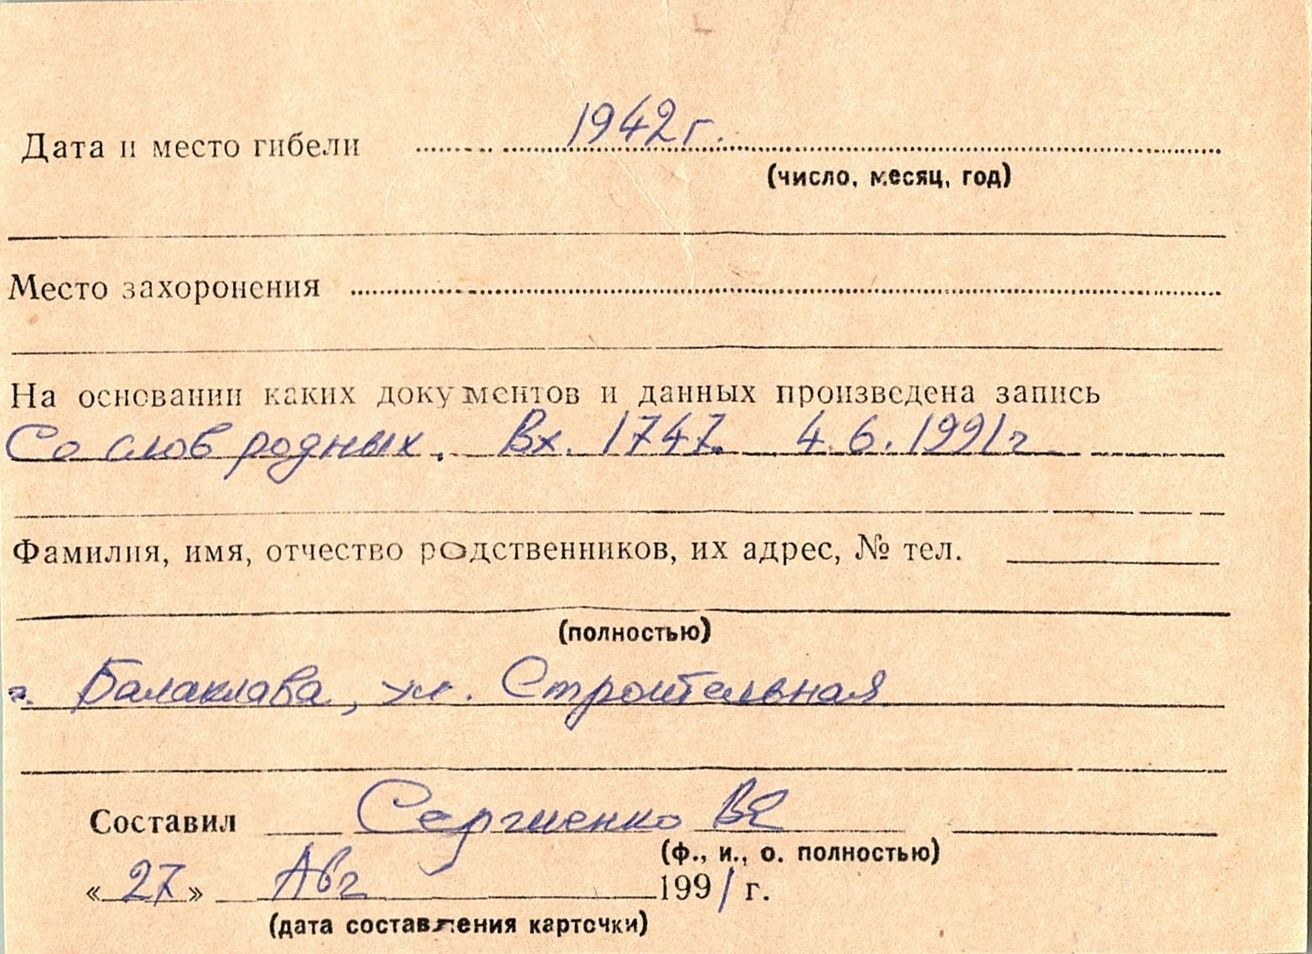 Дата и место гибели 1942 г.
(число, месяц, год)
Место захоронения
На основании каких документов и данных произведена запись
Со слов родных. Вх. 1747. 4.6.1991г
Фамилия, имя, отчество родственников, их адрес, № тел.
(полностью)
г. Балаклава, ул. Строительная
Составил Сергиенко ВЕ
(ф., и., о. полностью)
«27» Авг 1991 г.
(дата составления карточки)